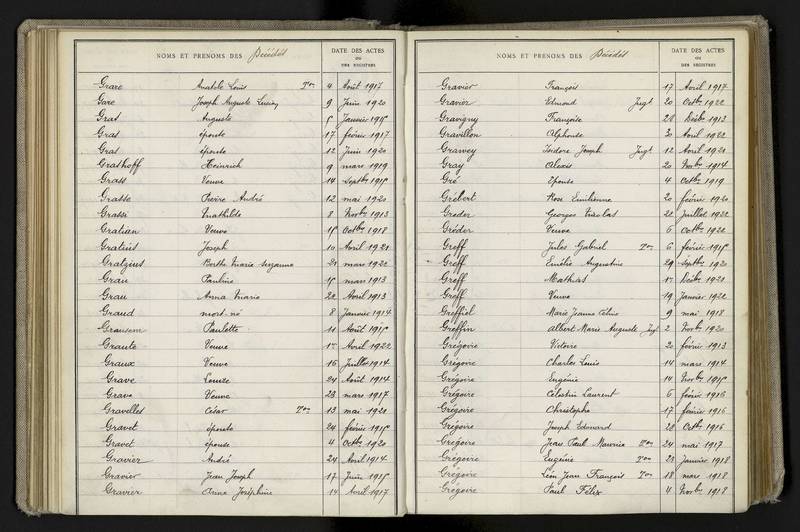 NOMS ET PRENOMS DES Décédés DATE DES ACTES
OU
DES REGISTRES
Grare Anatole Louis Ton 4 Août 1917
Gare Joseph Auguste Lucien 9 Juin 1920
Gras Auguste 5 Janvier 1915
Gras épouse 17 février 1917
Gras épouse 12 Juin 1920
Grashoff Heinrich 9 mars 1919
Grass Veuve 14 Septbre 1915
Grasse Pierre André 12 mai 1920
Grassi Mathilde 8 Novbre 1913
Gratian Veuve 15 Octbre 1918
Gratius Joseph 10 Avril 1921
Gratzius Berthe Marie Suzanne 21 mars 1922
Grau Pauline 15 mars 1913
Grau Anna Marie 22 Avril 1913
Graud mort-né 8 Janvier 1914
Paulette 11 Août 1915
Veuve 15 Avril 1922
Graux Veuve 16 Juillet 1914
Grave Louise 24 Août 1914
Grave Veuve 23 mars 1917
Gravelles César Ton 13 mai 1921
Gravet épouse 24 février 1915
Gravet épouse 4 Octbre 1920
Gravier André 24 Avril 1914
Gravier Jean Joseph 17 Juin 1915
Gravier Anne Joséphine 14 Avril 1917
NOMS ET PRENOMS DES Décédés DATE DES ACTES
OU
DES REGISTRES
Gravier François 17 Avril 1917
Gravier Edmond Jugt 20 Octbre 1922
Gravigny Françoise 28 Décbre 1913
Gravillon Alphonse 30 Avril 1922
Gravey Isidore Joseph Jugt 12 Avril 1920
Gray Alexis 20 Novbre 1914
Gré Epouse 4 Octbre 1919
Grébert Rose Emilienne 20 février 1920
Greder Georges Nicolas 22 Juillet 1922
Gréder Veuve 6 Octbre 1922
Greff Jules Gabriel Ton 6 février 1915
Greff Emélie Augustine 29 Septbre 1920
Greff Mathias 15 Décbre 1921
Greff Veuve 19 Janvier 1922
Greffiel Marie Jeanne Céline 9 mai 1918
Greffin Albert Marie Auguste Jugt 2 Novbre 1920
Grégoire Victoire 20 février 1913
Grégoire Charles Louis 14 mars 1914
Grégoire Eugénie 14 Novbre 1915
Grégoire Célestin Laurent 6 février 1916
Grégoire Christophe 17 février 1916
Grégoire Joseph Edouard 28 Octbre 1916
Grégoire Jean Paul Maurice Ton 24 mai 1917
Grégoire Eugène Ton 23 Janvier 1918
Grégoire Léon Jean François Ton 18 mars 1918
Grégoire Paul Félix 4 Novbre 1918